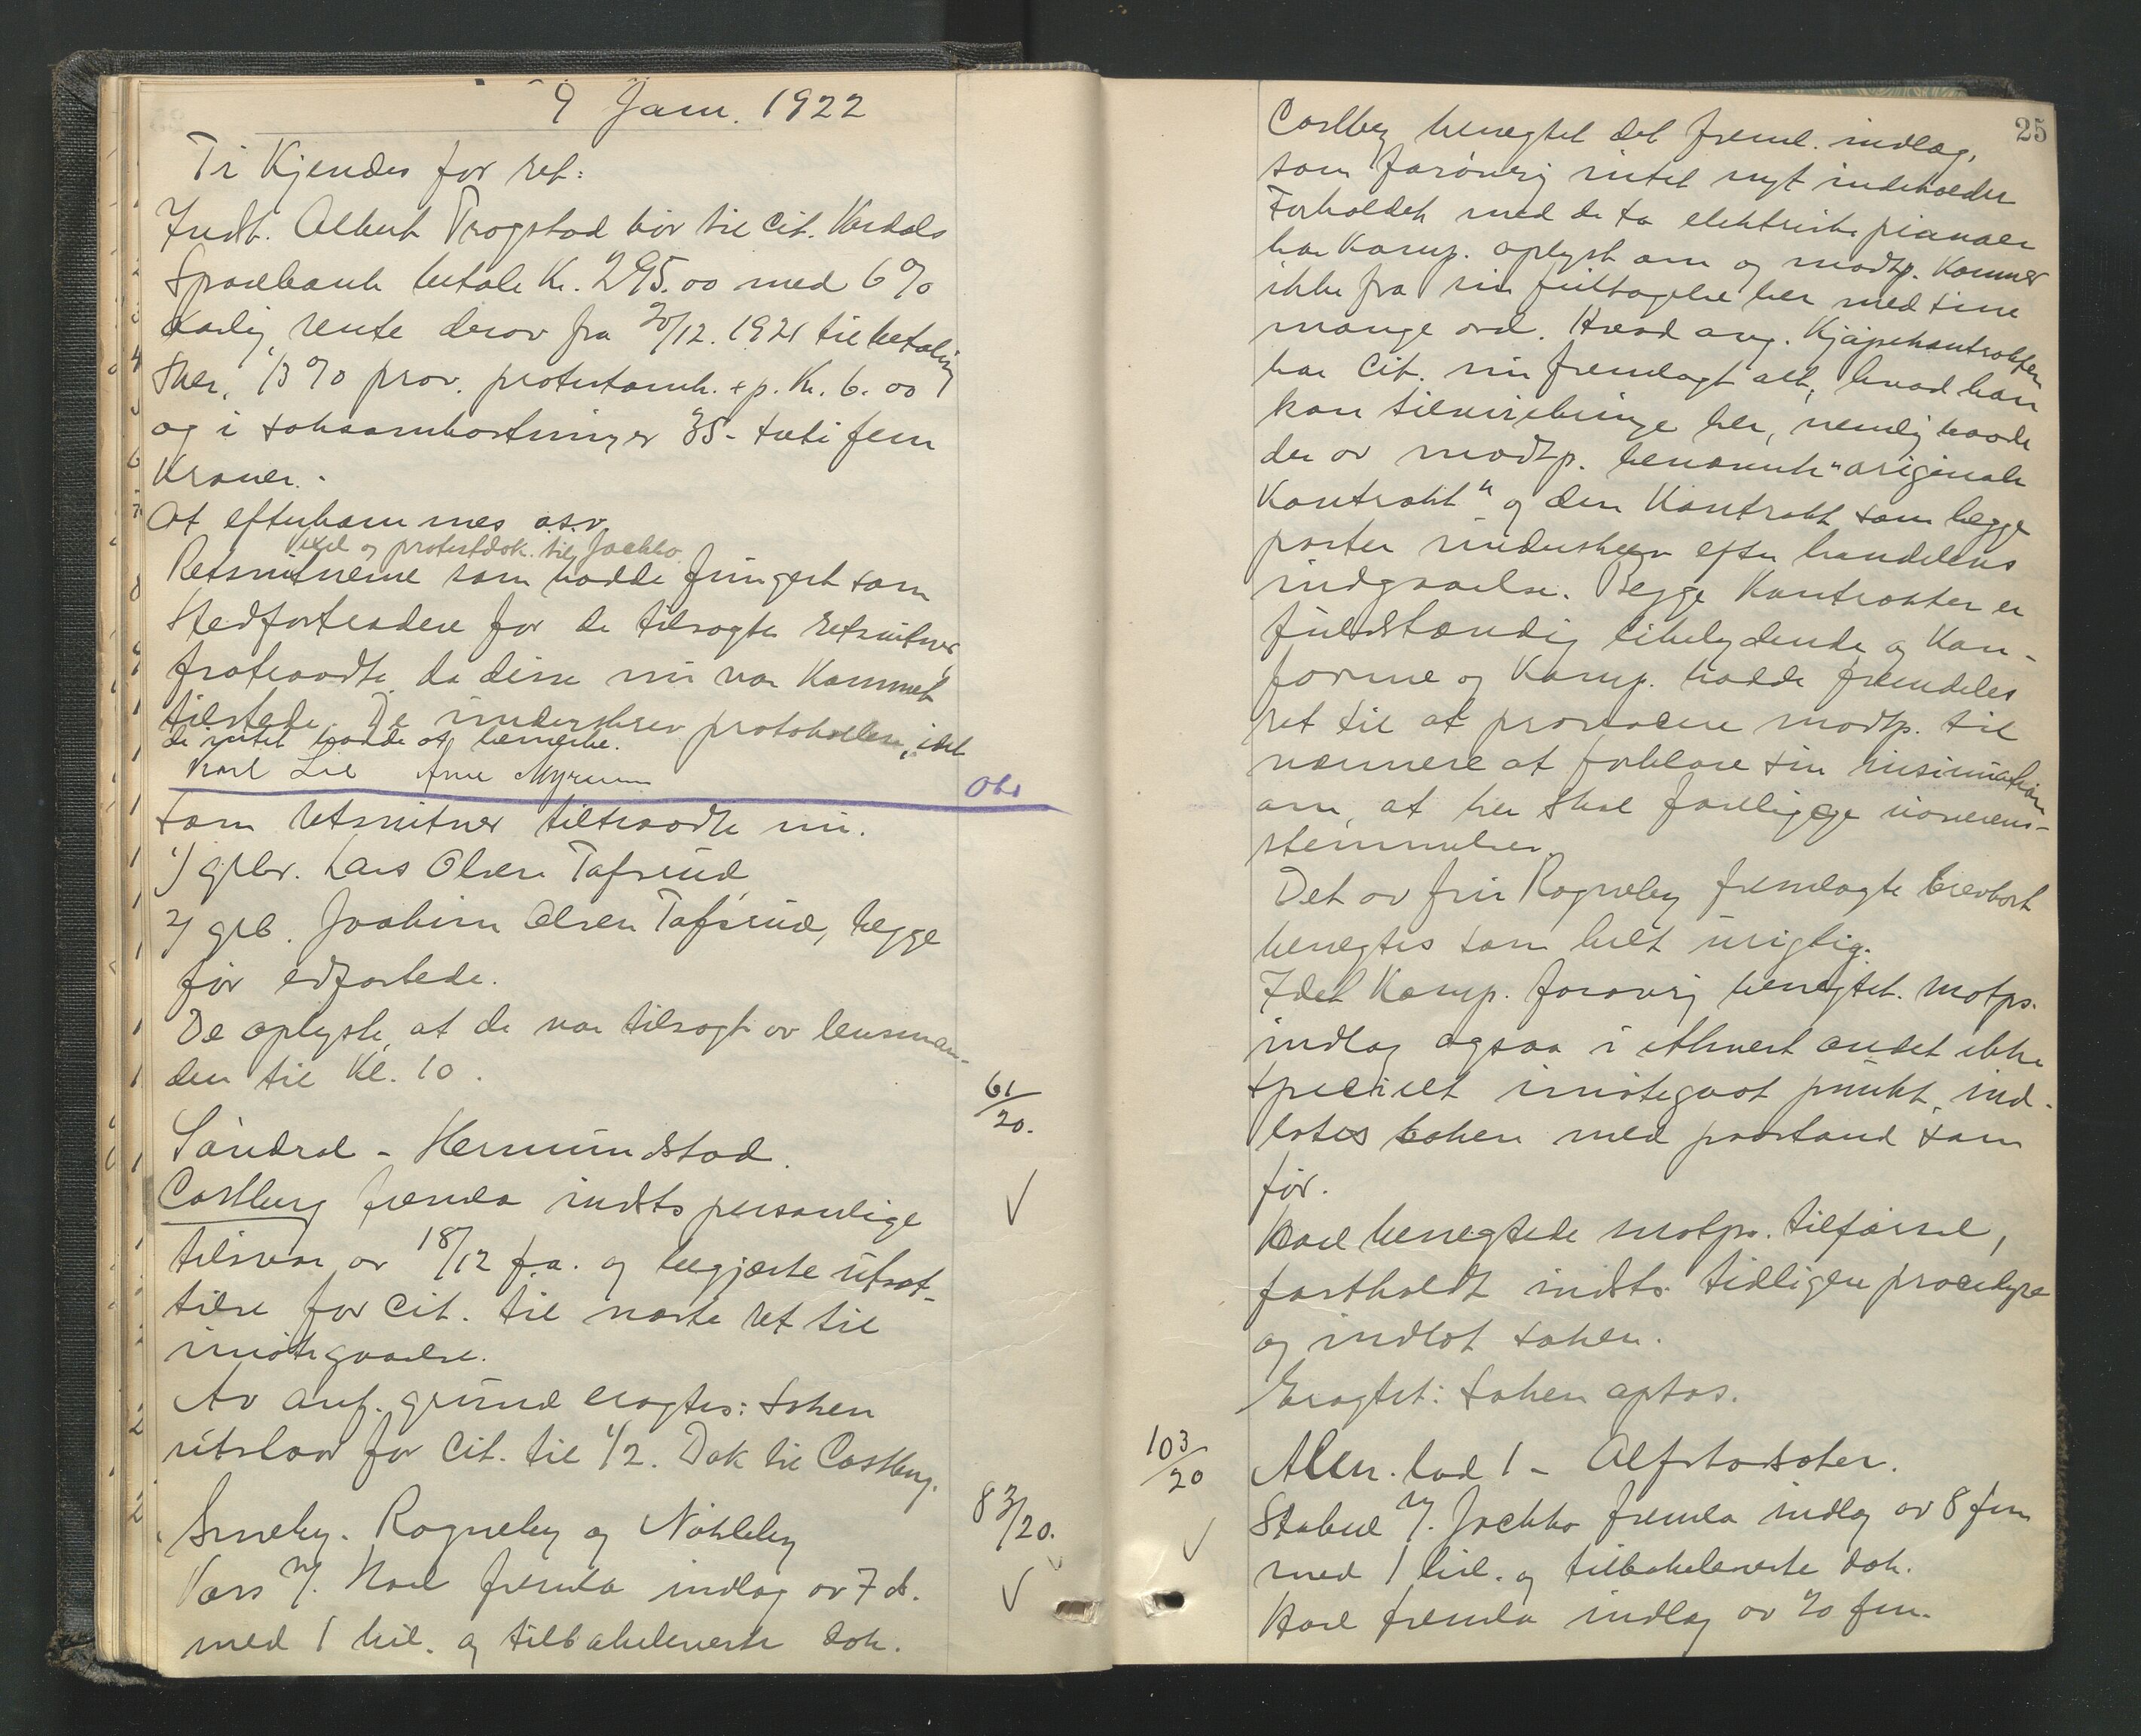 9 Jan. 1922
Ti Kjendes for ret:
Indt. Albert Progstad bør til cit. Vardals
Sparebank betale Kr. 295.00 med 6 %
aarlig rente derav fra 20/12. 1921 til betaling
sker, 1/3 % prov. protestomk. + p. Kr. 6.00
og i saksomkostninger 35 - tretifem
Kroner. -
At efterkommes o.s.v.
Vexel og protestdok. til Jackbo
Retsvitnerne som hadde fungert som
Stedfortrædere for de tilsagte retsvitner
fratraadte da disse nu var kommet
tilstede. De underskrev protokollen, idet
de intet hadde at bemerke.
Karl Lie Arne Myrum
Som retsvitner tiltraadte nu.
1) grbr. Lars Olsen Tafsrud
2) grb. Joakim Olsen Tafsrud, begge
før edfæstede.
De oplyste, at de var tilsagt av lensman-
den til Kl. 10.
61/20.
Søndral - Hermundstad.
Castberg fremla indts personlige
tilsvar av 18/12 f.a. og begjærte utsæt-
telse for cit. til næste ret til
imøtegaaelse.
Av anf. grund eragtes: Saken
utstaar for cit. til 1/2. Dok til Castberg.
83/20.
Smeby - Ragneby og Nøkleby
Vars v/. Hoel fremla indlæg av 7 ds.
med 1 bil. og tilbakeleverte dok.
25
Castberg benegtet det freml. indlæg,
som forøvrig intet nyt indeholder
Forholdet med de to elektriske pianoer
har komp. oplyst om og modtp. kommer
ikke fra sin fulltagelse her med sine
mange ord. Hvad ang. Kjøpekontrakten
har Cit. nu fremlagt alt, hvad han
kan tilveiebringe her, nemlig baade
den av modtp. benævnte "originale
Kontrakt" og den Kontrakt som begge
parter underskrev efter handelens
indgaaelse. Begge Kontrakter er
fuldstændig likelydende og kon-
forme og Komp. hadde fremdeles
ret til at provocere modtp. til
nærmere at forklare sin insinuation
om, at her skal foreligge uoverens-
stemmelser.
Det av fru Ragneby fremlagte brevkort
benegtes som helt urigtig.
Idet Komp. forøvrig benegtet motps.
indlæg ogsaa i ethvert andet ikke
specielt imøtegaat punkt, ind-
lates saken med paastand som
før.
Hoel benegtede motps. tilførsel,
fastholdt indts. tidligere procedyre
og indlot saken.
Eragtet: Saken optas.
103/20
Alm. lod 1 - Alfstadsæter.
Stabel v/. Jackbo fremla indlæg av 8 jan
med 1 bil. og tilbakeleverte dok.
Hoel fremla indlæg av 20 jan.